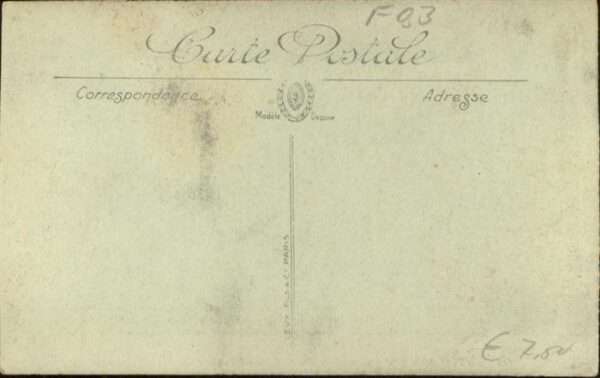 F 93
Carte Postale
Correspondance
Adresse
Modèle Déposé
& Cie PARIS
€ 7,50